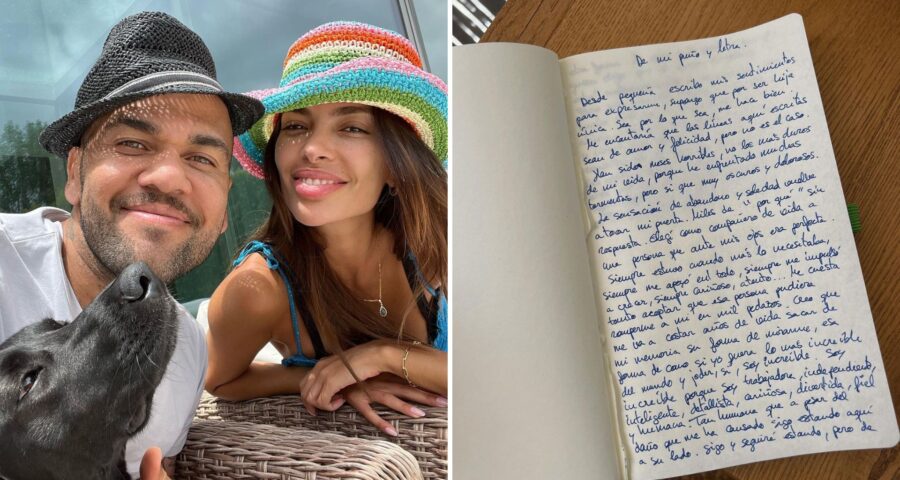 De mi puño y letra.
Desde pequeña escribo mis sentimientos
para expresarme, supongo que por ser hija
única. Sea por lo que sea, me hace bien.
Me encantaría que las líneas aquí escritas
sean de amor y felicidad, pero no es el caso.
Han sidos meses horribles, no los más duros
de mi vida, porque he enfrentado muchas
tormentas, pero sí que muy oscuros y dolorosos.
La sensación de abandono y soledad vuelve
a tocar mi puerta. Miles de "¿por qué" sin
respuesta. Elegí como compañero de vida a
una persona que ante mis ojos era perfecta.
Siempre estuvo cuando más lo necesitaba,
siempre me apoyó en todo, siempre me impulsó
a crecer, siempre cariñoso, atento... Me cuesta
tanto aceptar que esa persona pudiera
romperme a mi en mil pedazos. Creo que
me va a costar años de vida sacar de
mi memoria su forma de mirarme, esa
forma de como si yo fuera lo más increíble
del mundo y joder, sí, soy increíble. Soy
increíble porque soy trabajadora, independiente,
inteligente, detallista, cariñosa, divertida, fiel
y humana. Tan humana que a pesar del
daño que me ha causado sigo estando aquí
a su lado. Sigo y seguiré estando, pero de